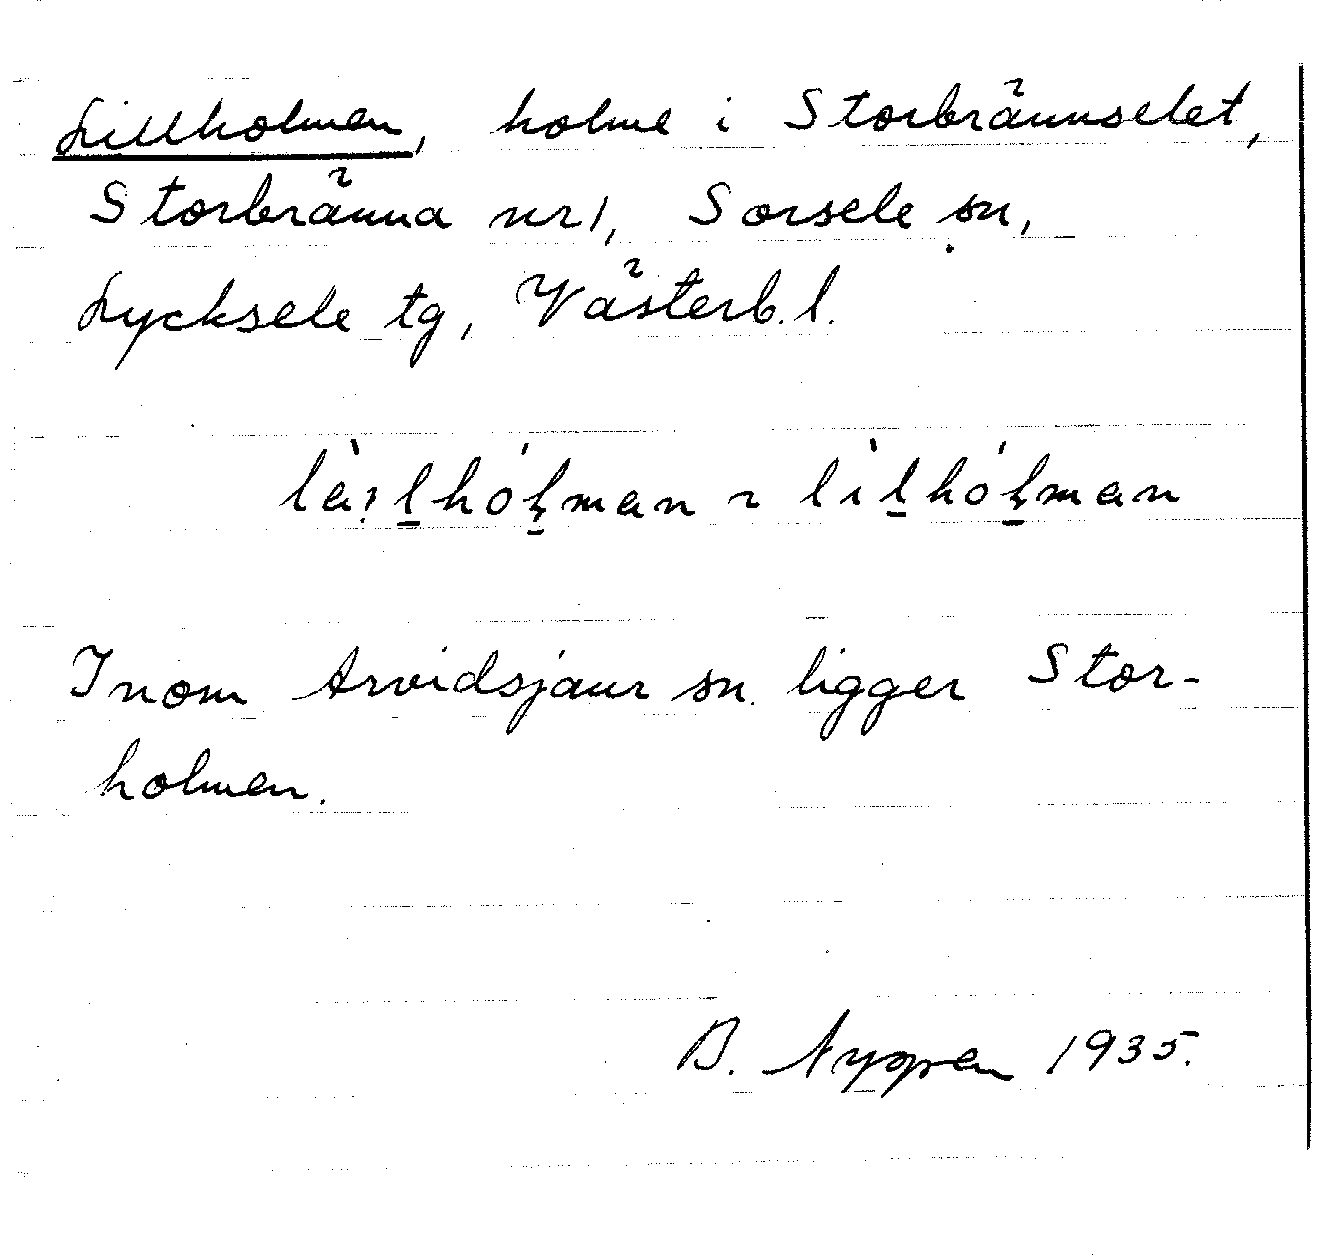 Lillholmen, holme i Storbrännselet,
Storbränna nr 1, Sorsele sn,
Lycksele tg, Västerb. l.
~ lìl̠hól̠man
Inom Arvidsjaur sn. ligger Stor-
holmen.
B. 1935.